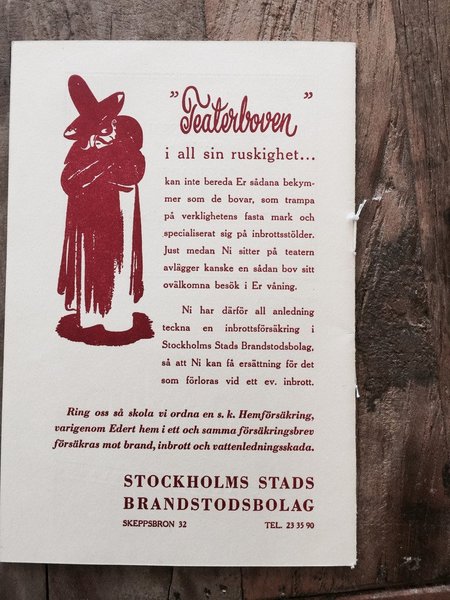 ”Teaterboven”
i all sin ruskighet...
kan inte bereda Er sådana bekym-
mer som de bovar, som trampa
på verklighetens fasta mark och
specialiserat sig på inbrottsstölder.
Just medan Ni sitter på teatern
avlägger kanske en sådan bov sitt
ovälkomna besök i Er våning.
Ni har därför all anledning
teckna en inbrottsförsäkring i
Stockholms Stads Brandstodsbolag,
så att Ni kan få ersättning för det
som förloras vid ett ev. inbrott.
Ring oss så skola vi ordna en s. k. Hemförsäkring,
varigenom Edert hem i ett och samma försäkringsbrev
försäkras mot brand, inbrott och vattenledningsskada.
STOCKHOLMS STADS
BRANDSTODSBOLAG
SKEPPSBRON 32 TEL. 23 35 90